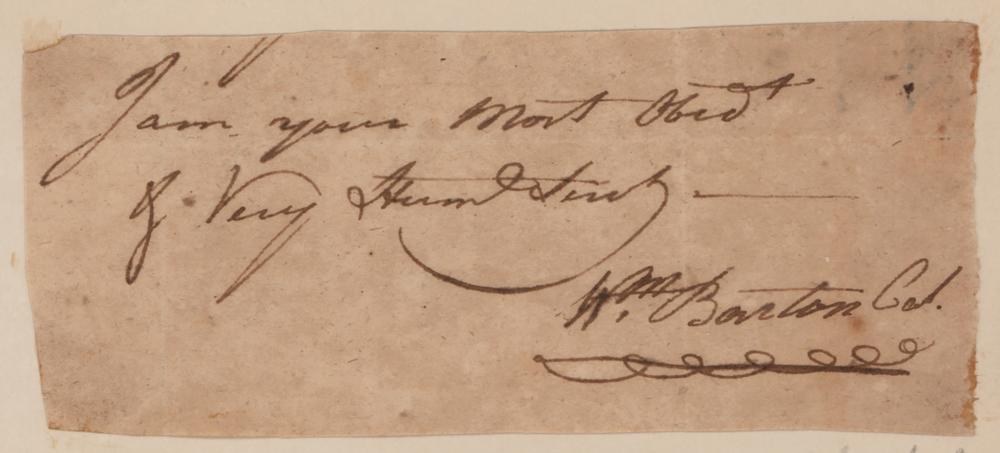 I am your most Obedt
& Very Huml Servt
Wm. Barton Col.